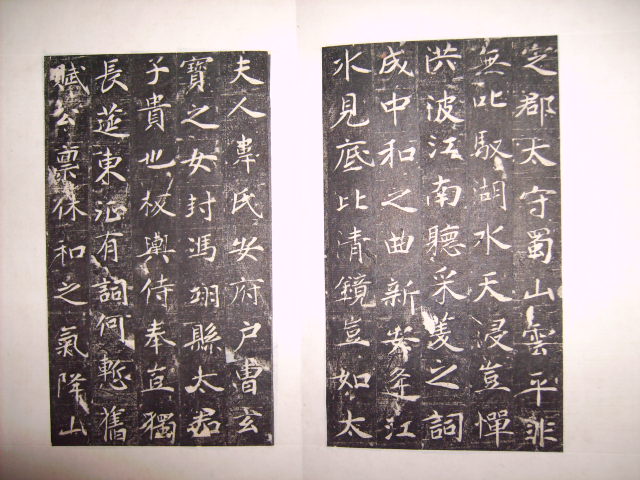 定郡太守蜀山雲平非
無叱馭湖水天浸豈憚
洪波江南聽采蓤之詞
成中和之曲新安江
水見底比清鏡豈如太
夫人韋氏安府户曹玄
寶之女封馮翊縣太君
子貴也板輿侍奉豈獨
長筵東征有詞何慙舊
賦公禀休和之氣降山